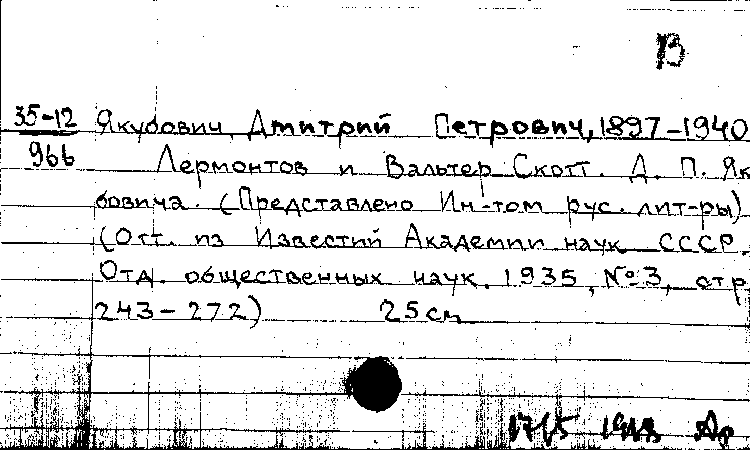 В
35-12 Якубович, Дмитрий Петрович, 1897-1940
966 Лермонтов и Вальтер Скотт. Д. П. Як
бовича. (Представлено Ин-том рус. лит-ры)
(Отт. из Известий Академии наук СССР.
Отд. общественных наук. 1935, №3, стр
243-272) 25 см
17/5